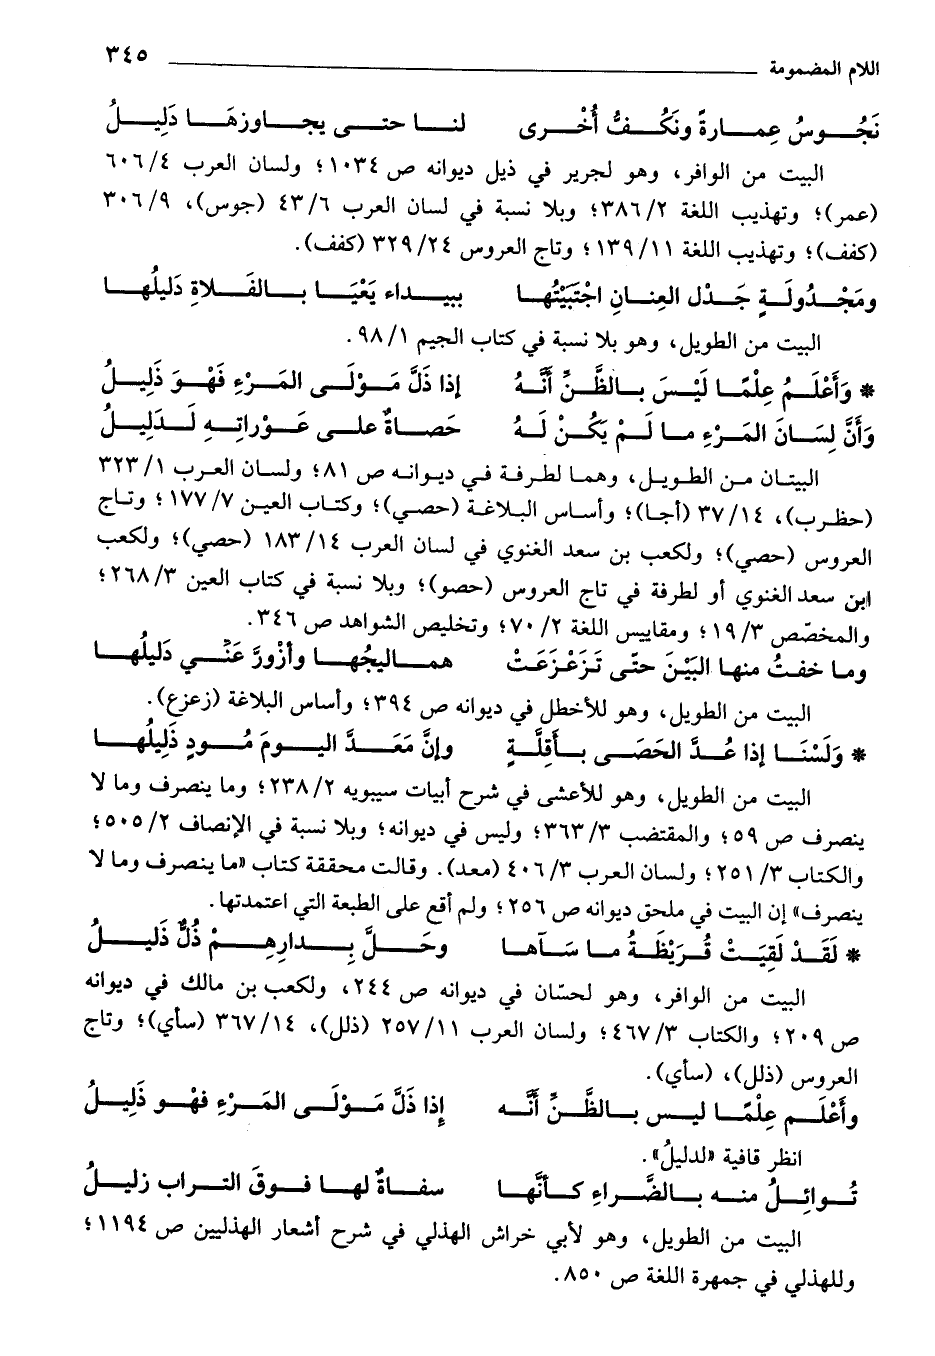 اللام المضمومة ٣٤٥
نَجُوسُ عِمارةً ونَكُفُّ أُخْرى لنا حتى يجاوزهَا دَلِيلُ
البيت من الوافر، وهو لجرير في ذيل ديوانه ص ١٠٣٤؛ ولسان العرب ٦٠٦/٤
(عمر)؛ وتهذيب اللغة ٣٨٦/٢؛ وبلا نسبة في لسان العرب ٤٣/٦ (جوس)، ٣٠٦/٩
(كفف)؛ وتهذيب اللغة ١٣٩/١١؛ وتاج العروس ٣٢٩/٢٤ (كفف).
ومَجْدُولَةٍ جَدْل العِنانِ اجْتَبَيْتُها ببيداء يَعْيَا بالفَلاةِ دَليلُها
البيت من الطويل، وهو بلا نسبة في كتاب الجيم ٩٨/١.
* وَأَعْلَمُ عِلْمًا لَيْسَ بالظَّنِّ أَنَّهُ إذا ذَلَّ مَوْلَى المَرْءِ فَهْوَ ذَلِيلُ
وَأَنَّ لِسَانَ المَرْءِ ما لَمْ يَكُنْ لَهُ حَصاةٌ على عَوْراتِهِ لَدَلِيلُ
البيتان من الطويل، وهما لطرفة في ديوانه ص ٨١؛ ولسان العرب ٣٢٣/١
(حظرب)، ٣٧/١٤ (أجا)؛ وأساس البلاغة (حصي)؛ وكتاب العين ١٧٧/٧؛ وتاج
العروس (حصي)؛ ولكعب بن سعد الغنوي في لسان العرب ١٨٣/١٤ (حصي)؛ ولكعب
ابن سعد الغنوي أو لطرفة في تاج العروس (حصو)؛ وبلا نسبة في كتاب العين ٢٦٨/٣؛
والمخصّص ١٩/٣؛ ومقاييس اللغة ٧٠/٢؛ وتخليص الشواهد ص ٣٤٦.
وما خفتُ منها البَيْنَ حتَّى تَزَعْزَعَتْ هماليجُها وأزْورَّ عَنِّي دَليلُها
البيت من الطويل، وهو للأخطل في ديوانه ص ٣٩٤؛ وأساس البلاغة (زعزع).
* وَلَسْنَا إذا عُدَّ الحَصَى بأقِلَّةٍ وإنَّ مَعَدَّ اليومَ مُودٍ ذَلِيلُها
البيت من الطويل، وهو للأعشى في شرح أبيات سيبويه ٢٣٨/٢؛ وما ينصرف وما لا
ينصرف ص ٥٩؛ والمقتضب ٣٦٣/٣؛ وليس في ديوانه؛ وبلا نسبة في الإنصاف ٥٠٥/٢؛
والكتاب ٢٥١/٣؛ ولسان العرب ٤٠٦/٣ (معد). وقالت محققة كتاب «ما ينصرف وما لا
ينصرف» إن البيت في ملحق ديوانه ص ٢٥٦؛ ولم أقع على الطبعة التي اعتمدتها.
* لَقَدْ لَقِيَتْ قُرَيْظَةُ ما سَآها وحَلَّ بِدارِهِمْ ذُلٌّ ذَلِيلُ
البيت من الوافر، وهو لحسّان في ديوانه ص ٢٤٤، ولكعب بن مالك في ديوانه
ص ٢٠٩؛ والكتاب ٤٦٧/٣؛ ولسان العرب ٢٥٧/١١ (ذلل)، ٣٦٧/١٤ (سأي)؛ وتاج
العروس (ذلل)، (سأي).
وأَعْلَم عِلْمًا ليس بالظَّنِّ أنَّه إِذا ذَلَّ مَوْلَى المَرْءِ فهْو ذَلِيلُ
انظر قافية «لدليلُ».
تُوائِلُ منه بالضَّراءِ كأنَّها سفاةٌ لها فوقَ التراب زليلُ
البيت من الطويل، وهو لأبي خراش الهذلي في شرح أشعار الهذليين ص ١١٩٤؛
وللهذلي في جمهرة اللغة ص ٨٥٠.